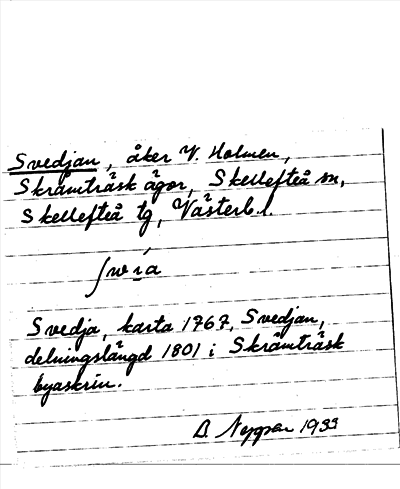 Svedjan, åker V. Holmen,
Skråmträsk ägor, Skellefteå sn,
Skellefteå tg, Västerb. l.
Svedja, karta 1767, Svedjan,
delningslängd 1801 i Skråmträsk
byaskrin.
D. 1933